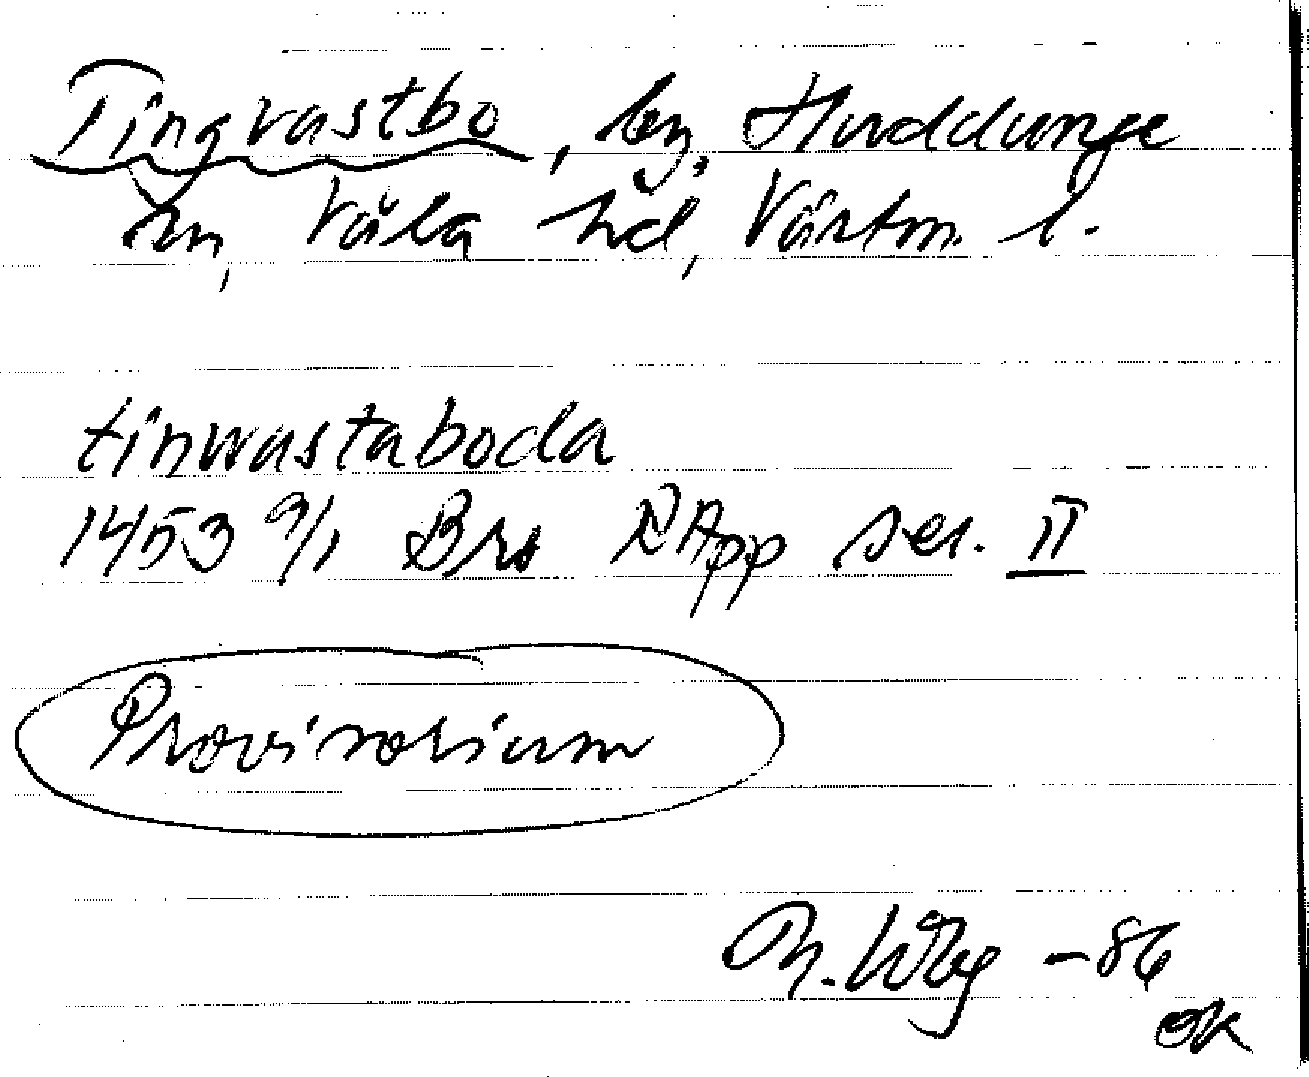 Tingvastbo, by, Huddunge
sn, Våla hd, Västm. l.
tinwastaboda
1453 9/1 Brs RApp ser. II
Provisorium
M. Wbg -86
OK